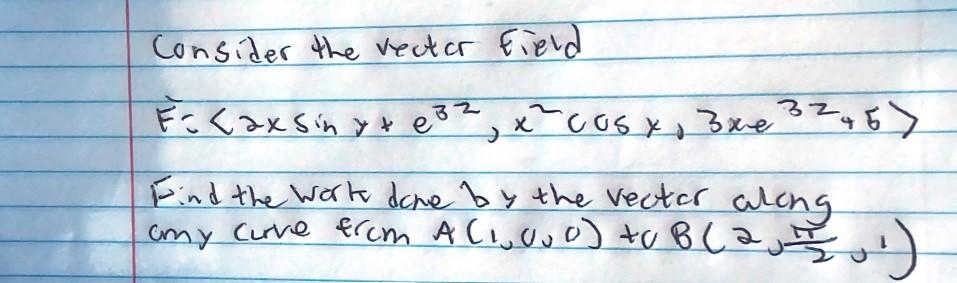 Consider the vector field
F⃗ = <2x sin y + e^3z, x^2 cos y, 3xe^3z + 5>
Find the work done by the vector along
any curve from A(1,0,0) to B(2, π/2, 1)